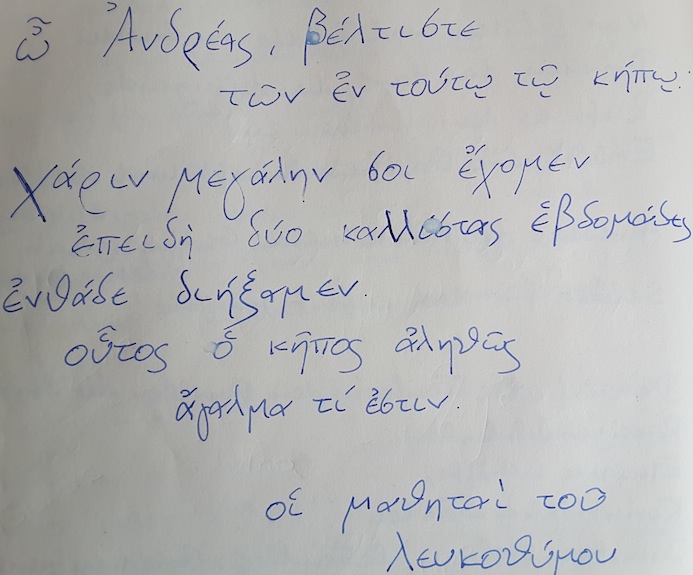 ὦ Ἀνδρέας, βέλτιστε
τῶν ἐν τούτῳ τῷ κήπῳ·
χάριν μεγάλην σοι ἔχομεν
ἐπειδὴ δύο καλλίστας ἑβδομάδες
ἐνθάδε διήξαμεν.
οὗτος ὁ κῆπος ἀληθῶς
ἄγαλμα τί ἐστιν.
οἱ μαθηταὶ τοῦ
λευκοθύμου